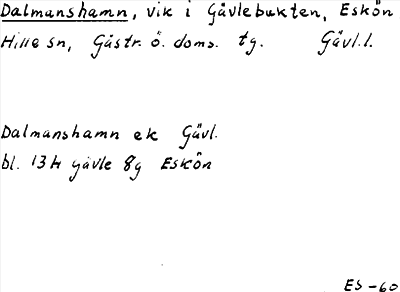 Dalmanshamn, vik i Gävlebukten, Eskön
Hille sn, Gästr. ö. doms. tg. Gävl.l.
Dalmanshamn ek Gävl.
bl. 13H gävle 8g Eskön
ES-60